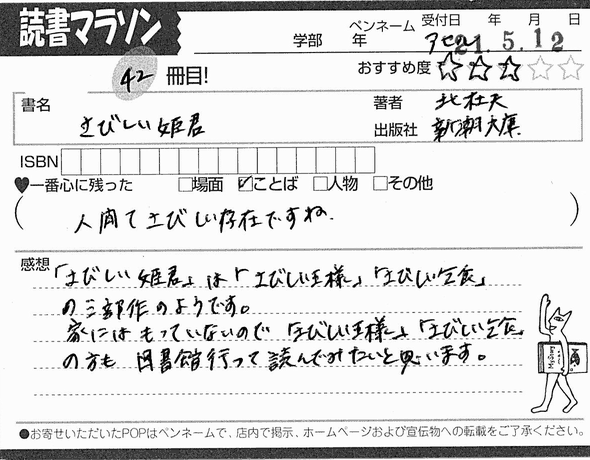 読書マラソン
42 冊目!
学部 年
ペンネーム アセロ
受付日 年 月 日
21.5.12
おすすめ度 ☆☆☆☆☆
書名 さびしい姫君
著者 北杜夫
出版社 新潮文庫
ISBN
♥一番心に残った □場面 ☑ことば □人物 □その他
(人間てさびしい存在ですね。)
感想
「さびしい姫君」は「さびしい王様」「さびしい乞食」
の三部作のようです。
家にはもっていないので「さびしい王様」「さびしい乞食」
の方も図書館行って読んでみたいと思います。
●お寄せいただいたPOPはペンネームで、店内で掲示、ホームページおよび宣伝物への転載をご了承ください。